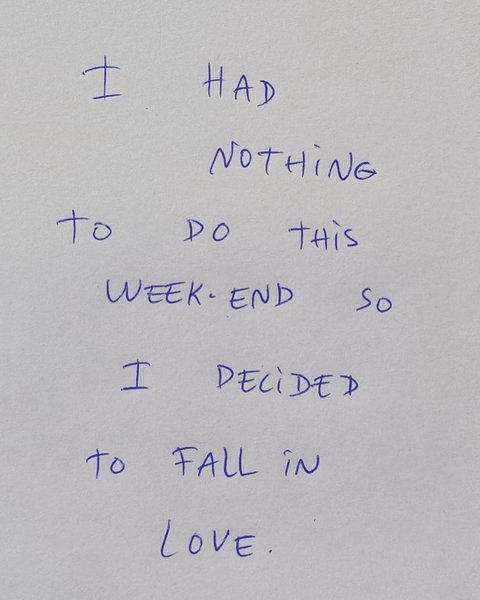 I HAD
NOTHiNG
TO DO THiS
WEEK-END SO
I DECiDED
TO FALL iN
LOVE.